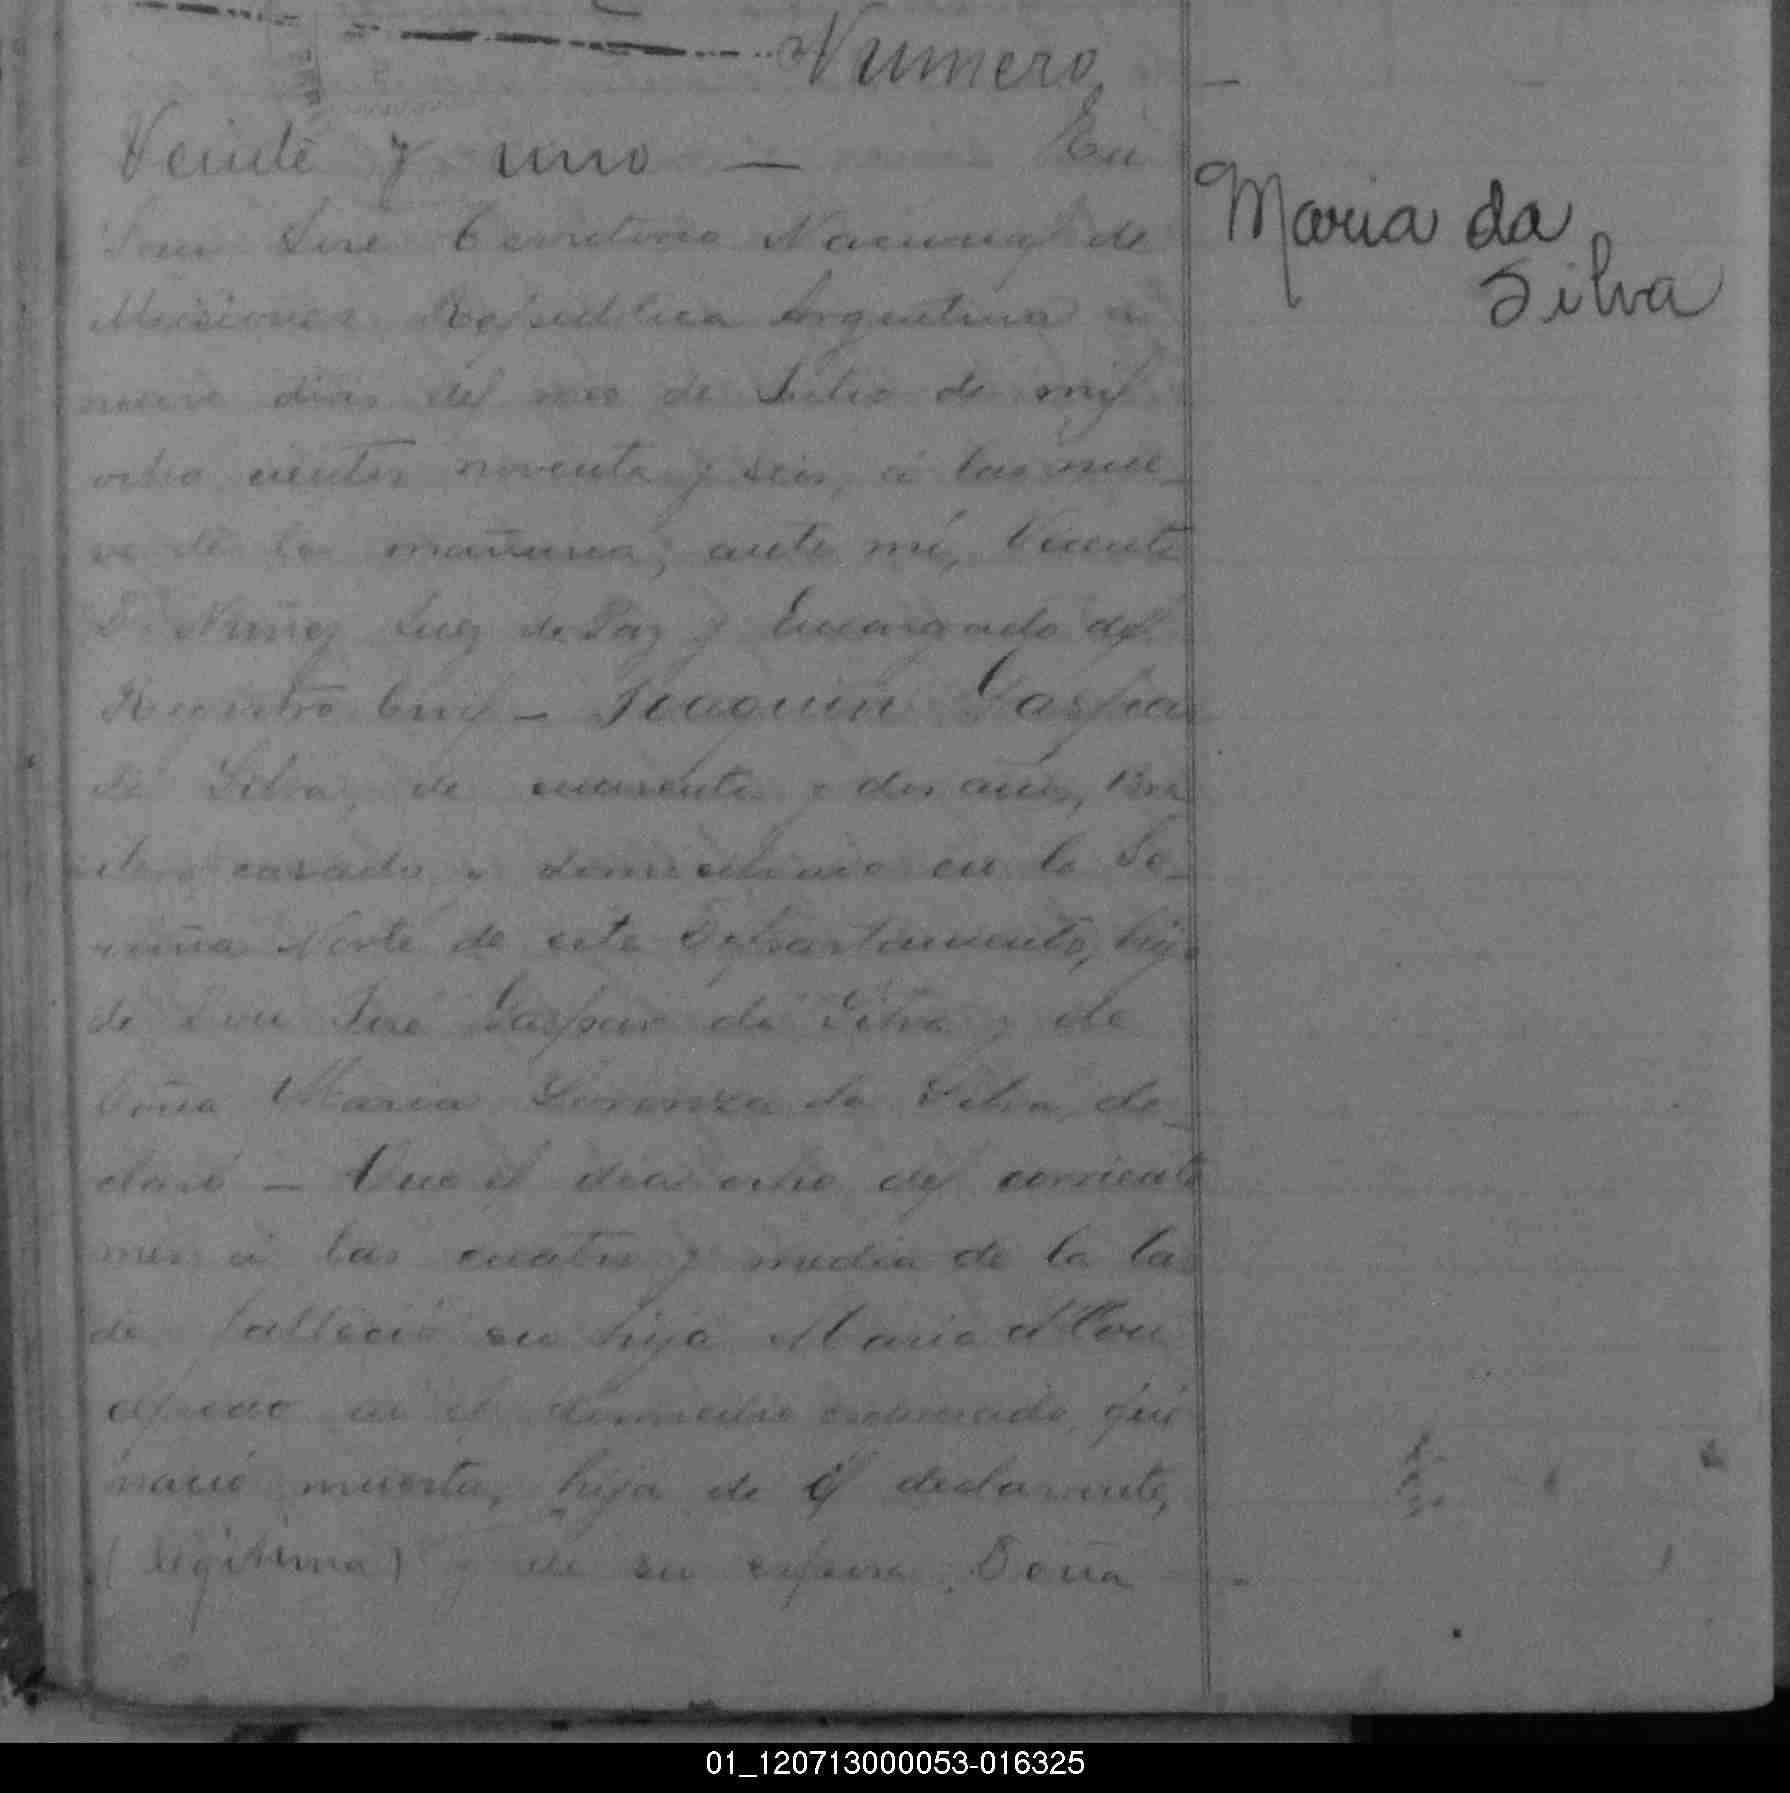 Numero
Veinte y uno — En
San José Territorio Nacional de
Misiones Republica Argentina a
nueve dias del mes de Julio de mil
ocho cientos noventa y seis, á las nue_
ve de la mañana, ante mí, Vicente
D. Nuñez Juez de Paz y Encargado del
Registro Civil — Joaquin Gaspar
da Silva, de cuarenta y dos años, Bra
silero casado y domiciliado en la Se_
rrina Norte de este Departamento, hijo
de Don José Gaspar da Silva y de
Doña Maria Lorenza da Silva, de_
claró — Que el dia ocho del corriente
mes á las cuatro y media de la tar
de falleció su hija Maria
en el domicilio espresado, que
nació muerta, hija de él declarante,
(legitima) y de su esposa Doña
Maria da
Silva
01_120713000053-016325